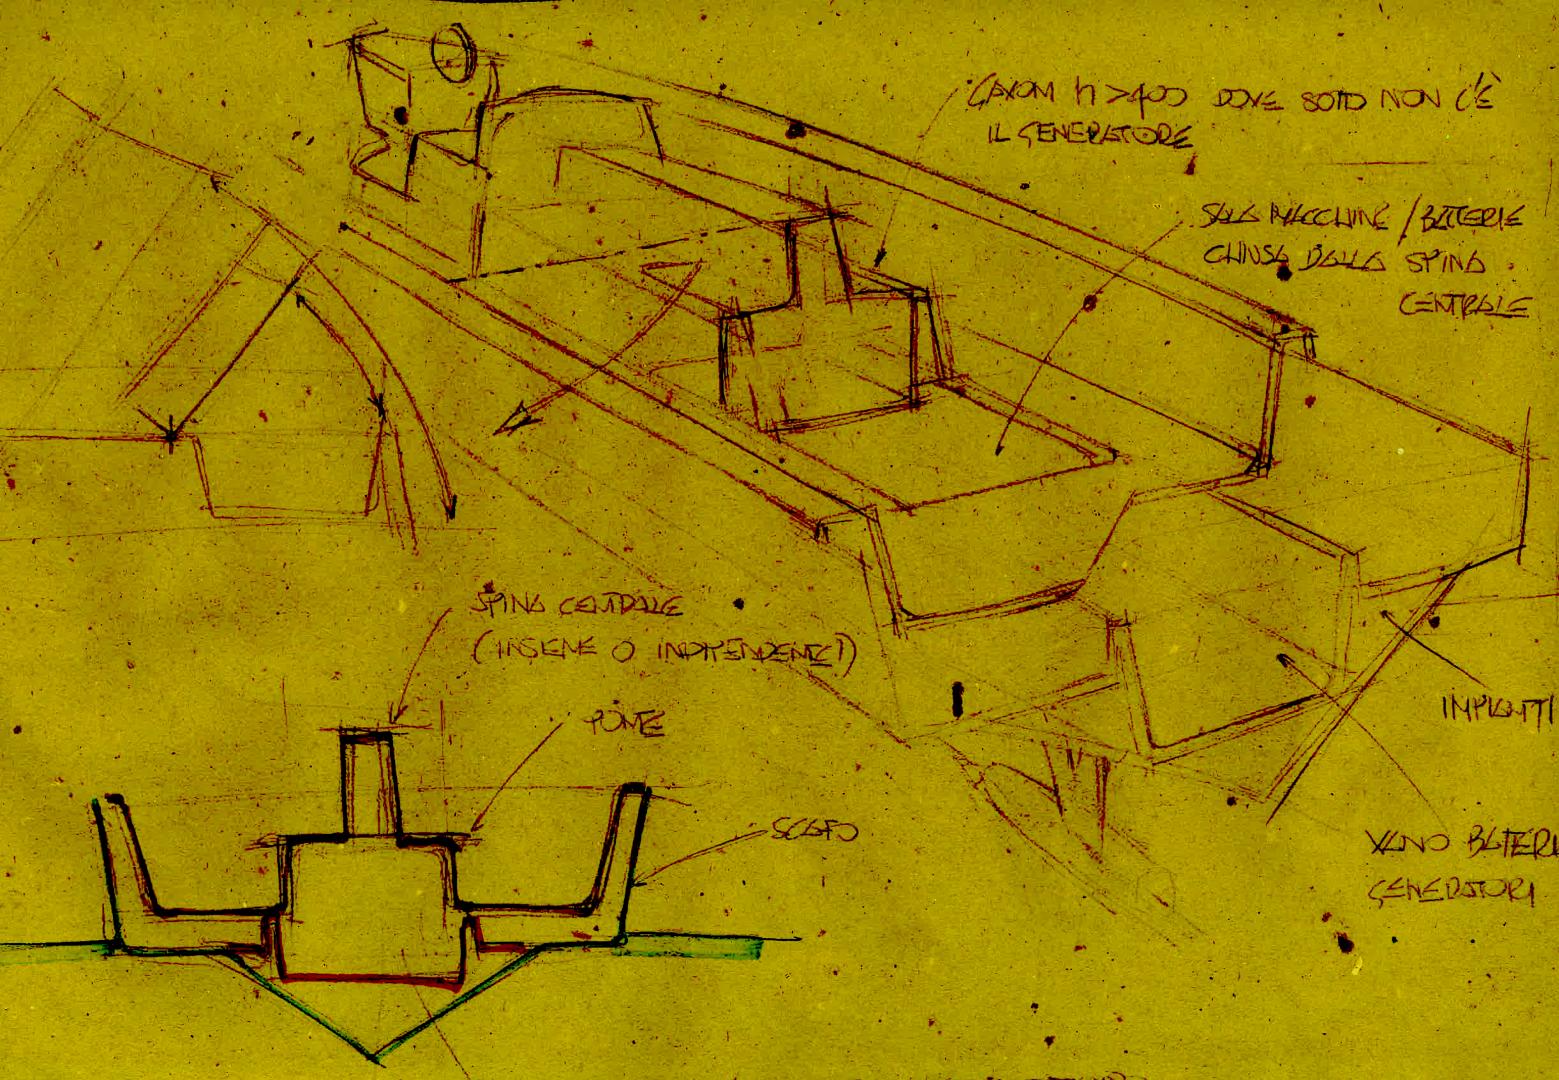 GAVONI h>400 DOVE SOTTO NON C'È
IL GENERATORE
SALA MACCHINE / BATTERIE
CHIUSA DALLA SPINA
CENTRALE
SPINA CENTRALE
(INSIEME O INDIPENDENTE?)
PONTE
SCAFO
IMPIANTI
VANO BATTERI
GENERATORI